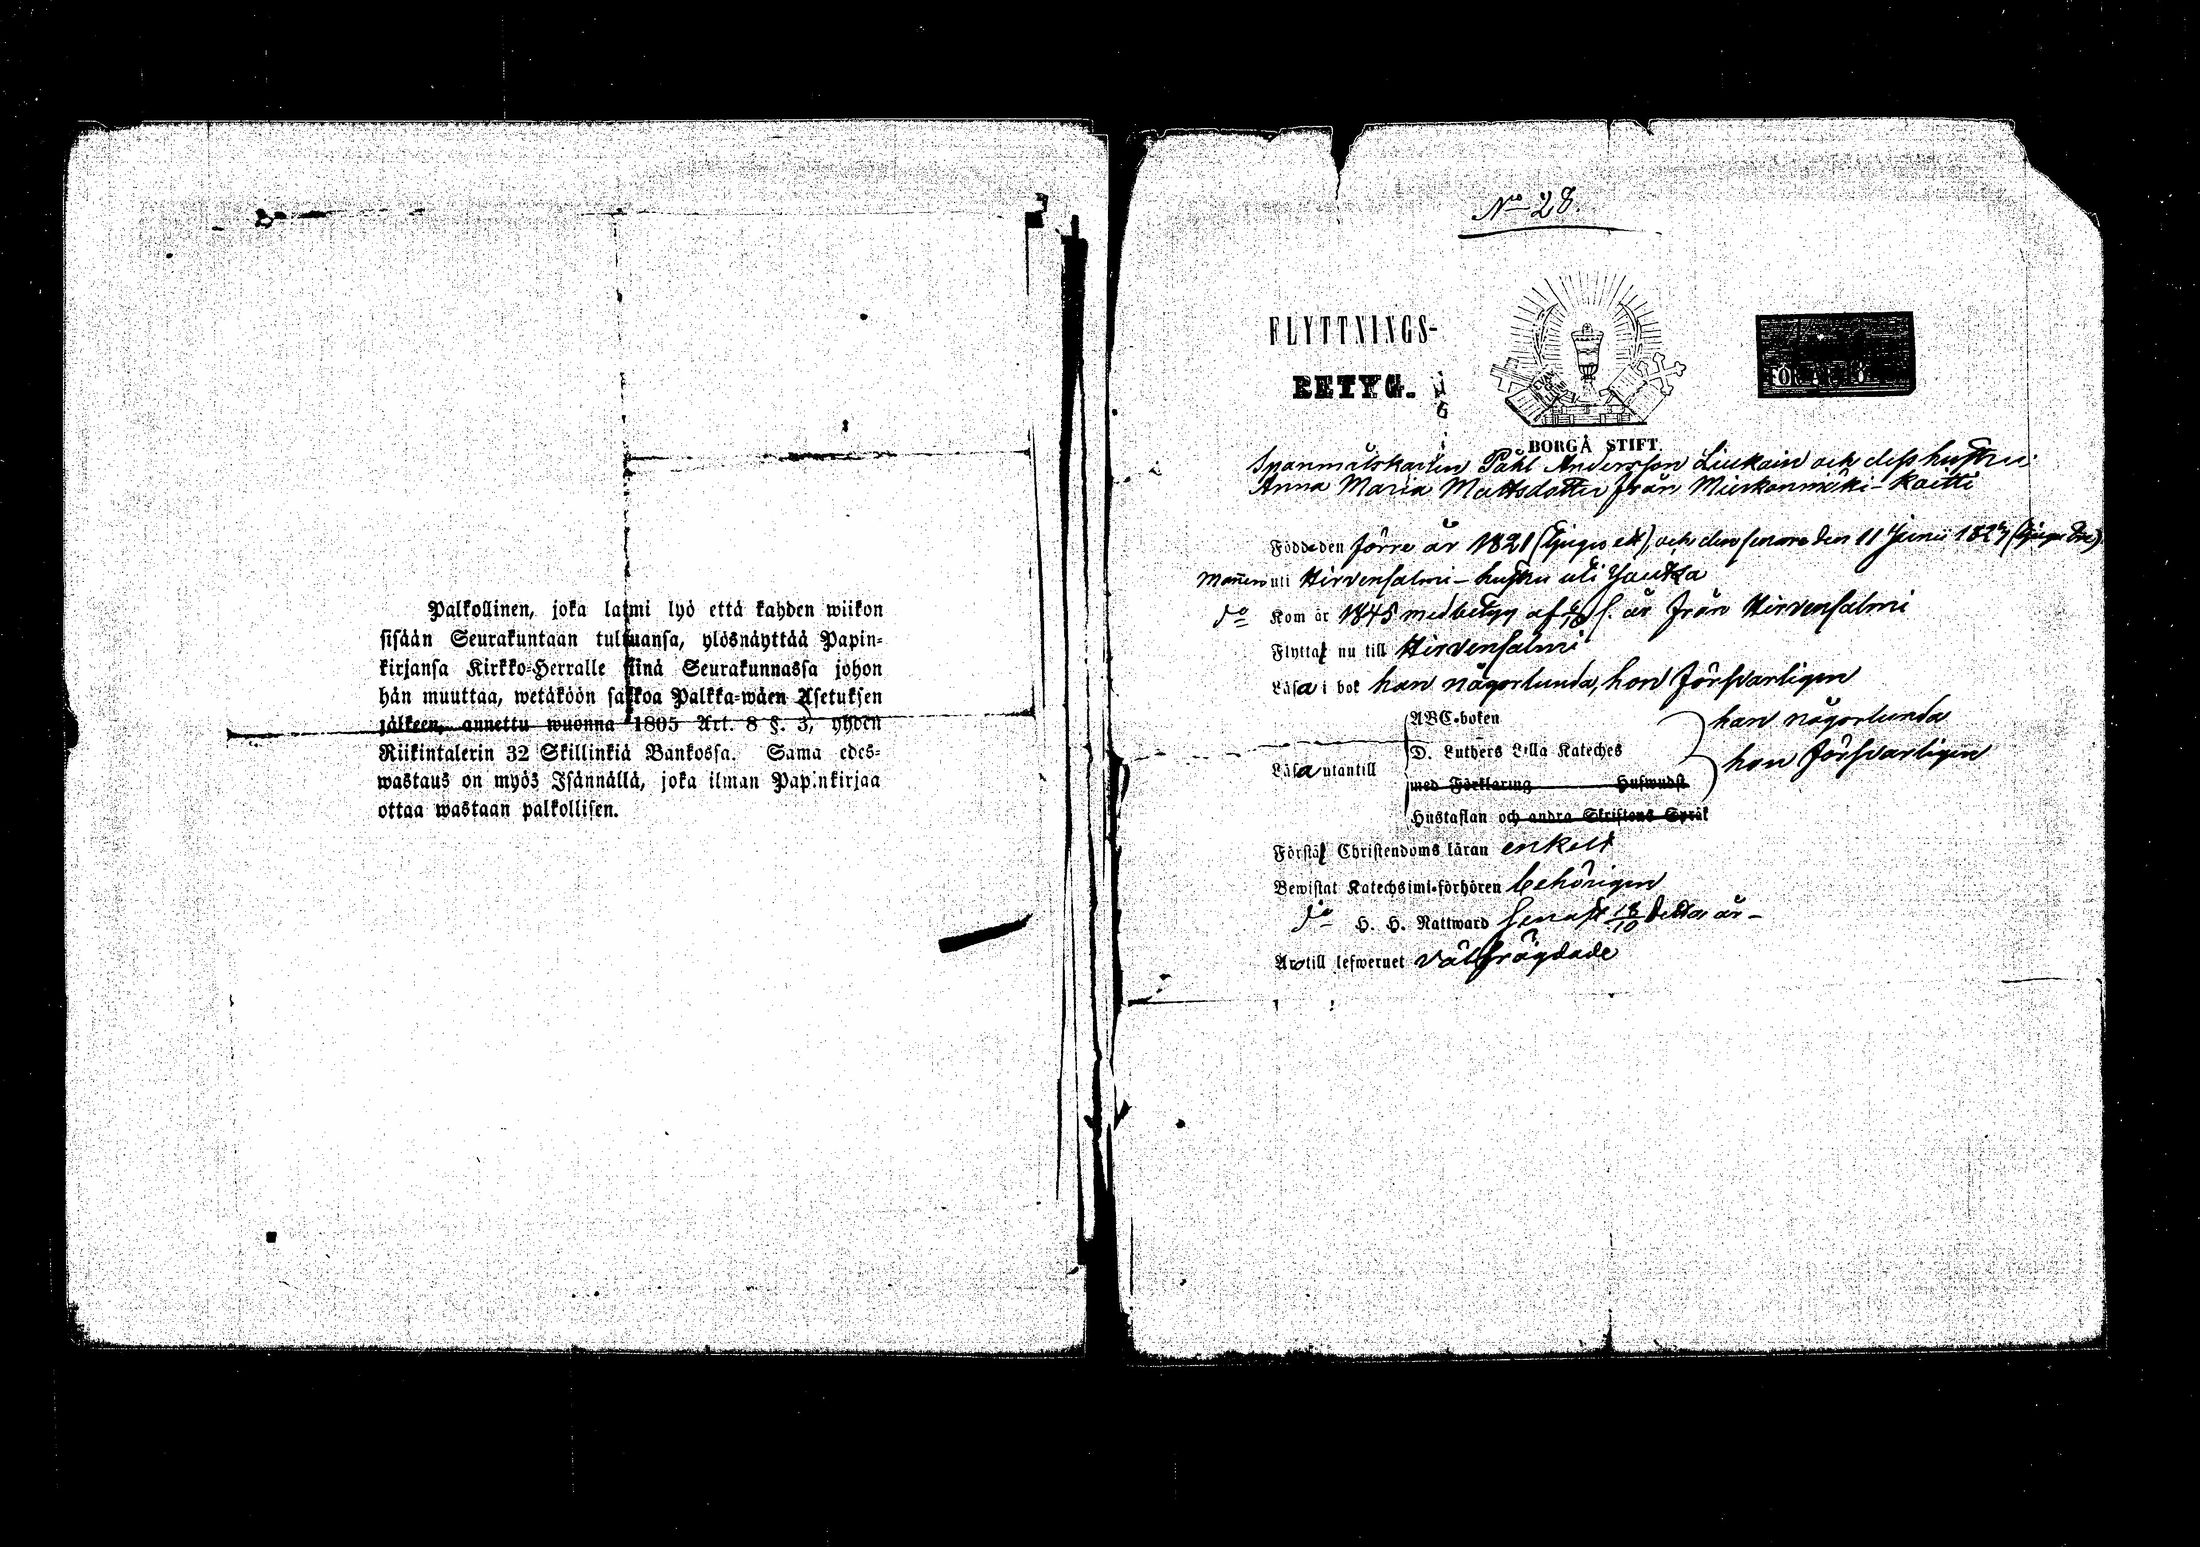 Palkollinen, joka laimi lyö että kahden wiikon
sisään Seurakuntaan tultuansa, ylösnäyttää Papin-
kirjansa Kirkko-Herralle siinä Seurakunnassa johon
hän muuttaa, wetäköön sakkoa Palkka-wäen Asetuksen
jälkeen, annettu wuonna 1805 Art. 8 §. 3, yhden
Riikintalerin 32 Skillinkiä Bankossa. Sama edes-
wastaus on myös Isännällä, joka ilman Papinkirjaa
ottaa wastaan palkollisen.
No 28.
FLYTTNINGS-
BETYG.
BORGÅ STIFT
Spanmålskarlen Påhl Andersson Liukain och dess hustru
Anna Maria Mattsdotter från Mieskonmäki - Kaitti
Födde den förre år 1821 (tjugu ett), och den senare den 11 Junii 1823 (tjugu tre)
Mannen uti Hirvensalmi - hustru uti Joutsa
do Kom år 1845 med betyg af s. år från Hirvensalmi
Flytta nu till Hirvensalmi
Läsa i bok han någorlunda, hon försvarligen
ABC-boken
D. Luthers Lilla Kateches
med Förklaring Huswudst
Hustaflan och andra Skriftens Språk
Läsa utantill
han någorlunda
hon försvarligen
Förstå Christendoms läran enkelt
Bewistat Katechsimi-förhören behörigen
do H. H. Nattward senast 18/10 detta år -
Äro till lefwernet välfrägdade